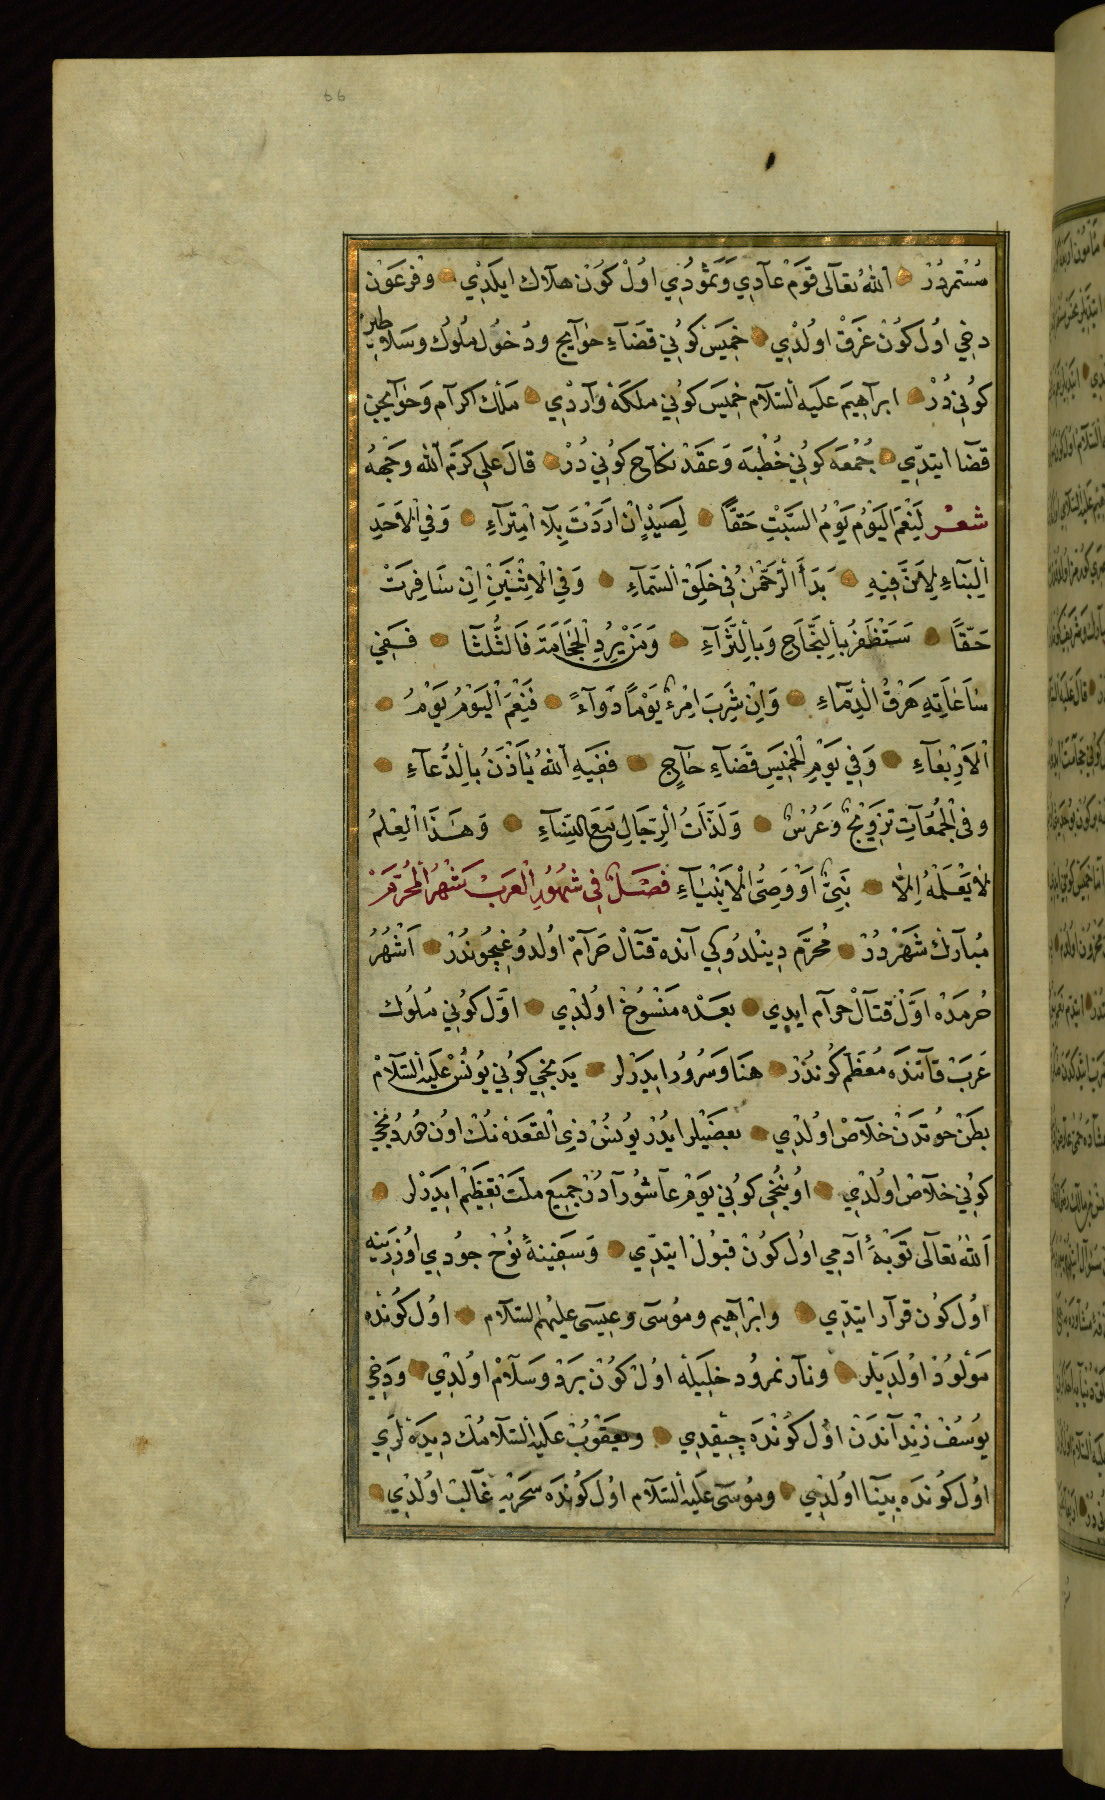 66
مُسْتَمِرْدُرْ اَللهُ تعَالى قَوْمَ عآدِي وَثَمُودُي اوُلْ كوُنْ هلَاك ايلَدْي وَفِرْعَوْن
دخِي اوُل كوُنْ غَرَقْ اوُلْدْي خَمِيسْ كوُنِي قضَآءِ حَوَآيج ودُخوُل مُلوُك وسَلاطِين
كوُنِي دُرْ ابرَاهِيمَ عَليَه السّلَام خَمِيسْ كوُنِي ملكَهْ وَآرْدْي مَلِكْ اكْرآم وَحَوآيجِن
قضَا ايتدِّي جُمْعَه كوُنِي خُطْبَه وَعَقَدْ نكَاح كوُنِي دُرْ قالَ علِي كرَّمَ اَلله وَجْهَهُ
شعْر لَنِعْمَ اليَوْمُ يَوْمُ السَّبْتِ حَقًّا لِصَيْدٍ اِنْ اَرَدْتَ بِلَا امْتِرَآءِ وَفِي الْاَحَدِ
اَلْبِنَاءِ لِاَنَّ فِيهِ بَدَأَ الْرَّحْمٰنُ فِي خَلْقِ السَّمَآءِ وَفِي الْاِثْنَيْنِ اِنْ سَافرَتْ
حَقًّا سَتَظْفَرُ بِالنَّجَاحِ وَبِالثَّرَآءِ وَمَنْ يُرِدِ الْحِجَامَةَ فَالثُّلثَا فَفِي
سَاعَاتِهِ هَرْقُ الْدِمَآءِ وَاِنْ شَرِبَ امْرءٌ يَوْمًا دَوَآءً فَنِعْمَ الْيَوْمُ يَوْمُ
الْاَرْبِعَآءِ وَفِي يَوْمِ الْخَمِيسِ قَضَآءِ حَاجٍ فَفِيهِ اَللهُ يَأذَنُ بِالدُّعَآءِ
وَفِي الْجُمُعَاتِ تَزْوِيجٌ وَعُرْسٌ وَلَذَّاتُ الْرِّجَالِ مَعَ النِّسَآءِ وَهٰذَا الْعِلْمُ
لَا يَعْلَمْهُ اِلَّا نَبِيٌّ اَوْ وَصِيُّ الْاَنْبِيَآءِ فَصَلٌ فِي شهُوُرِ الْعَرَبْ شَهْرُ الْمُحَرَّمْ
مُبَارَكْ شَهْرْدُرْ مُحَرَّم دِينلدُوكي آنده قتَالْ حَرَامْ اوُلدوُغيچُوندُرْ اَشْهُرُ
حُرمَدْه اوَّلْ قتَالْ حرَآم ايدِي بعَدْه مَنْسُوُخْ اوُلدْي اوَّل كوُنِي مُلوُك
عَرَبْ قاتندَه مُعَظَّم كوُندُرْ هنَا وَسُرُورْ ايدَرْلر يَدِنجِي كوُنِي يوُنُسْ عَليَه السّلَام
بطَنِ حوُتدَنْ خلَاصْ اوُلدْي بعَضيْلر ايدُرْ يوُنُسْ ذِي القعَدهْ نُكْ اوُن دُردُنجِي
كوُنِي خلَاصْ اوُلدْي اوُنُنجِي كوُنِي يَوْمِ عآشوُرآدُرْ جَمِيعِ ملَل تعْظِيم ايدَرْلر
اَللهُ تعَالى توْبَهٔ آدمِي اوُل كوُنْ قبُولْ ايتدِّي وَسَفِينهٔ نوُحْ جوُدِي اوُزَرِينه
اوُل كوُن قرَآر ايتدِّي وابْرَاهِيم وموُسَى وعِيسَى عليْهمُ السّلَام اوُل كوُندَه
مَوْلُودْ اوُلدِيلر ونَار نمرُود خلِيلَه اوُلْ كوُن بَردْ وسَلَامْ اوُلدْي وَدَخِي
يوُسُفْ زِندَآندَنْ اوُل كوُندَه چِيقدِي ويعقوُبْ عَليَه السّلَامُكْ دِيدَهْ لَرِي
اوُل كوُندَه بِينَا اوُلدْي وموُسَى عَليَه السّلَام اوُل كوُندَه سَحَرَيَه غَالِبْ اوُلدْي